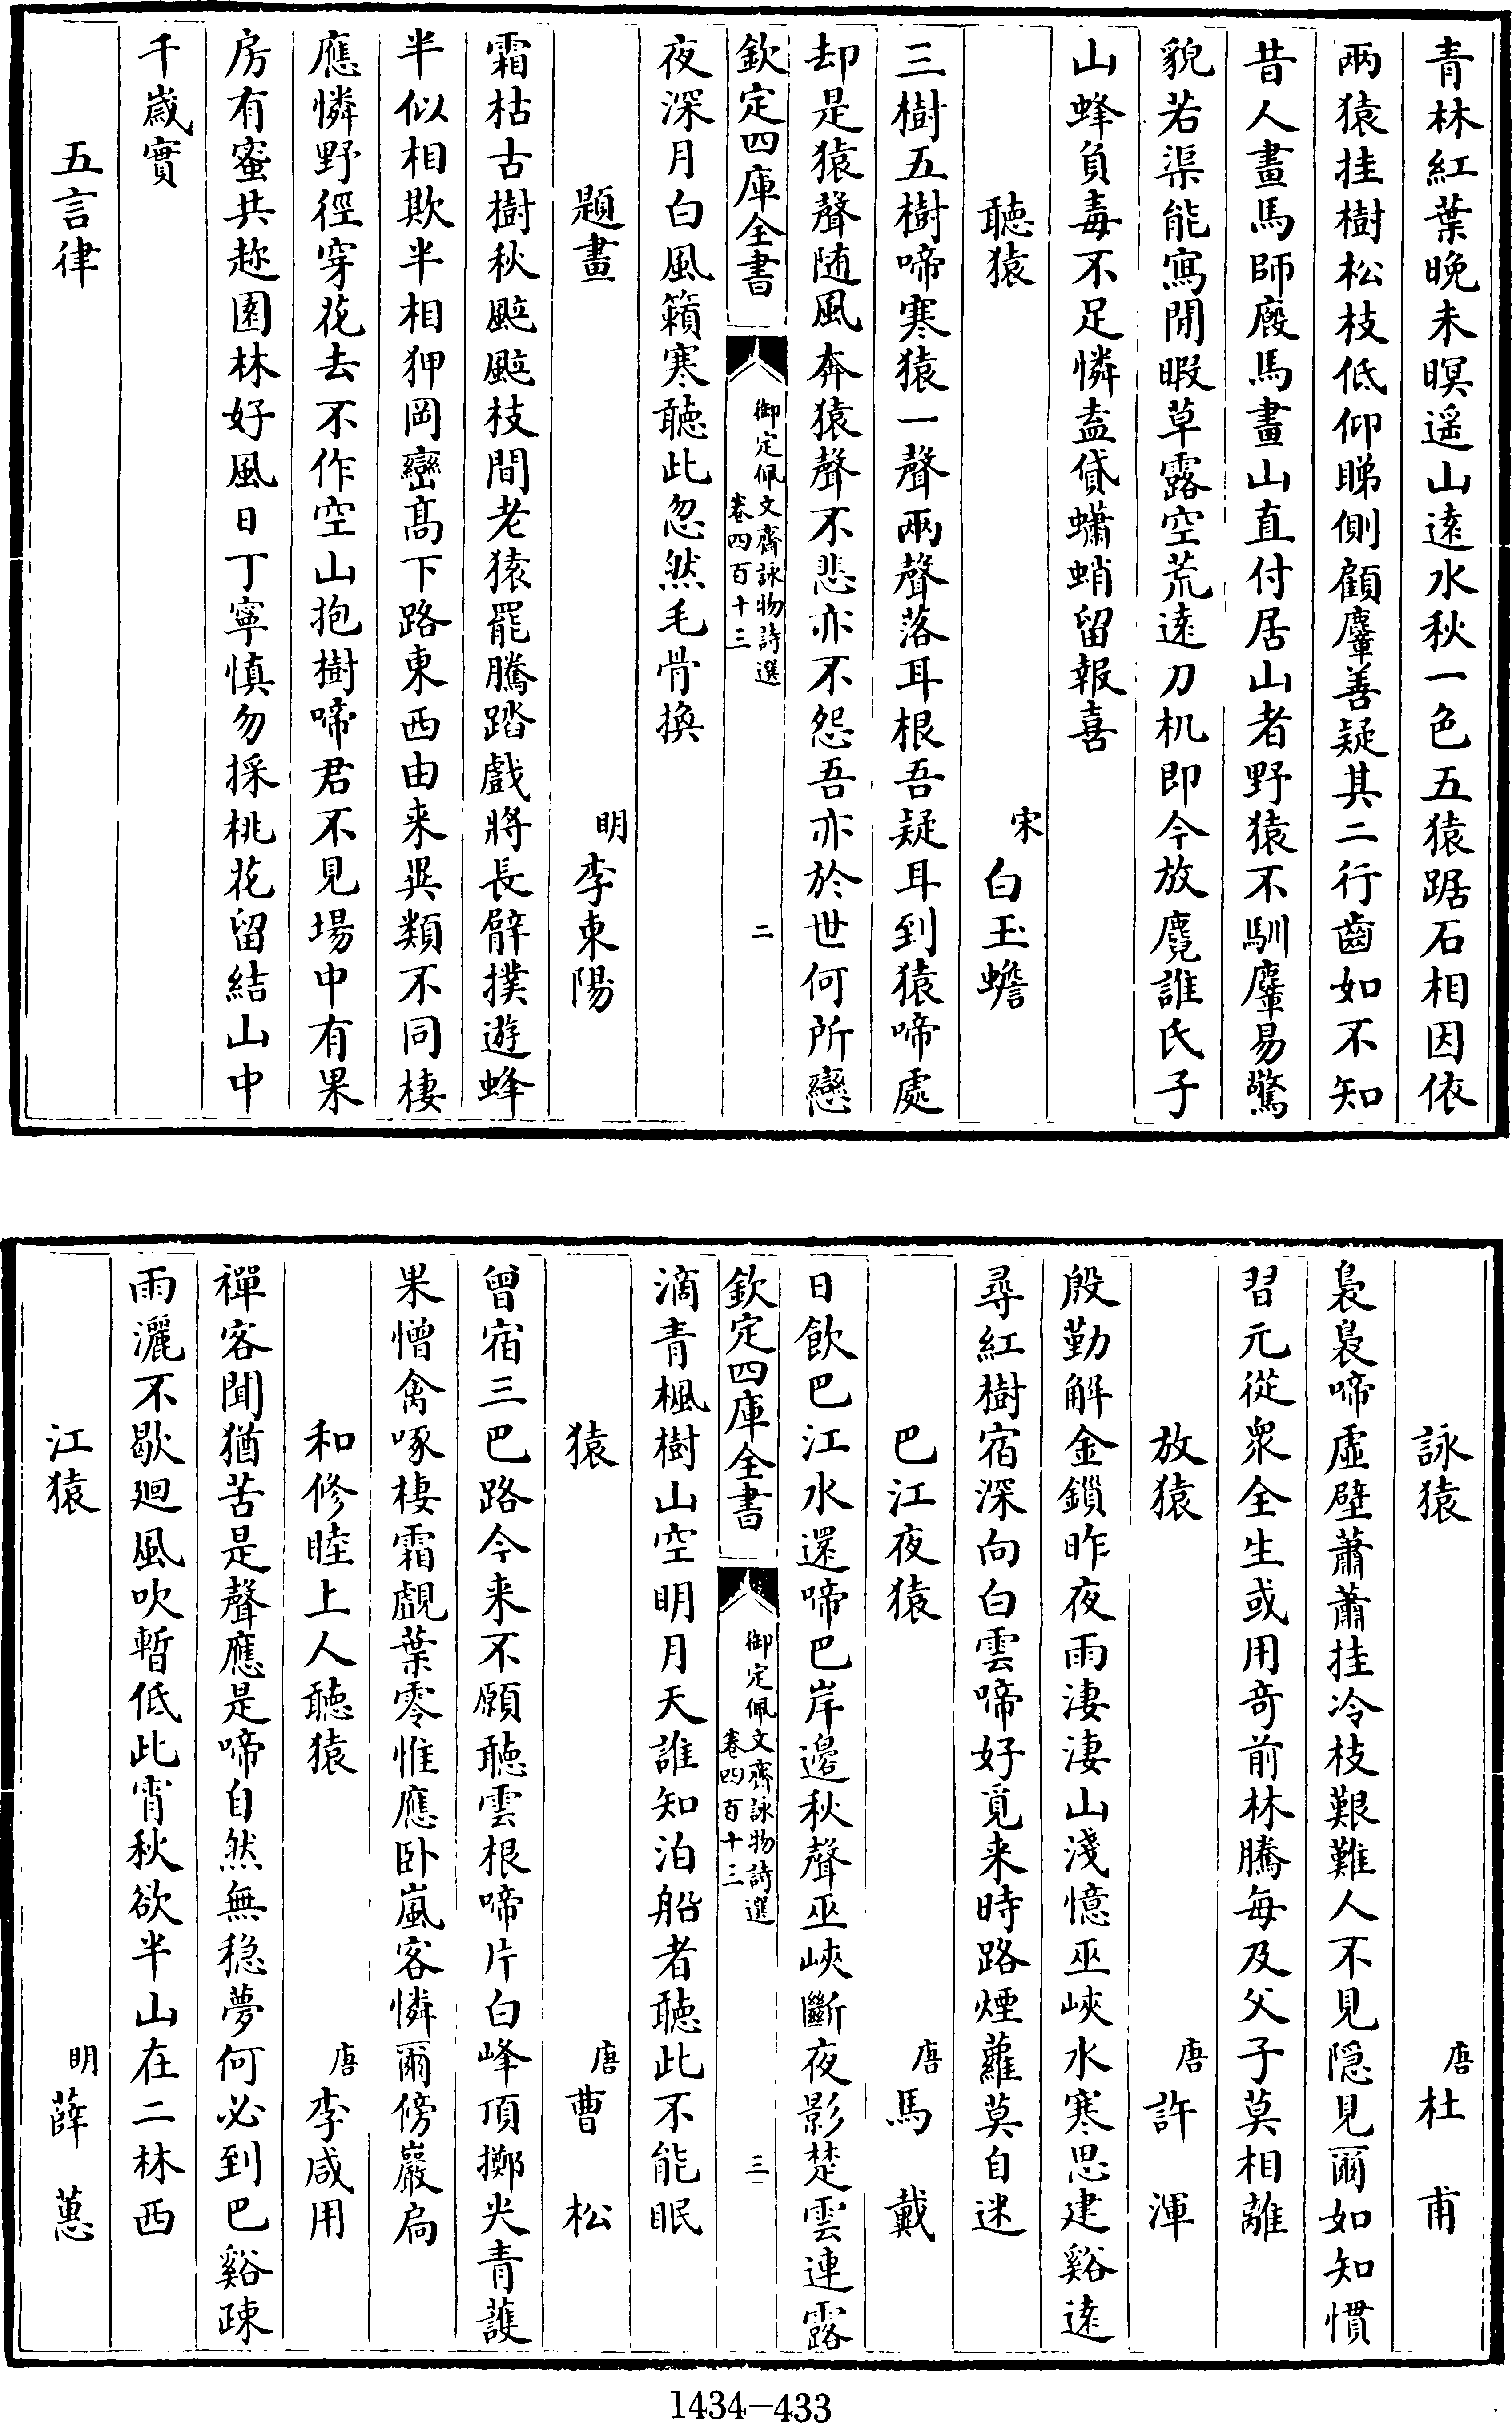 青林紅葉晚未暝遥山遠水秋一色五猿踞石相因依
兩猿挂樹松枝低仰睇側顧麞善疑其二行齒如不知
昔人畫馬師廄馬畫山直付居山者野猿不馴麞易驚
貌若渠能寫閒暇草露空荒遠刀机即今放麑誰氏子
山蜂負毒不足憐盍貸蠨蛸留報喜
聽猿 宋 白玉蟾
三樹五樹啼寒猿一聲兩聲落耳根吾疑耳到猿啼處
却是猿聲随風奔猿聲不悲亦不怨吾亦於世何所戀
欽定四庫全書 御定佩文齋詠物詩選 卷四百十三 二
夜深月白風籟寒聽此忽然毛骨換
題畫 明 李東陽
霜枯古樹秋颼颼枝間老猿罷騰踏戲將長臂撲遊蜂
半似相欺半相狎岡巒髙下路東西由来異類不同棲
應憐野徑穿花去不作空山抱樹啼君不見場中有果
房有蜜共趂園林好風日丁寧慎勿採桃花留結山中
千歲實
五言律
詠猿 唐 杜甫
裊裊啼虛壁蕭蕭挂冷枝艱難人不見隠見爾如知慣
習元從衆全生或用竒前林騰每及父子莫相離
放猿 唐 許渾
殷勤解金鎖昨夜雨淒淒山淺憶巫峽水寒思建谿遠
尋紅樹宿深向白雲啼好覓来時路煙蘿莫自迷
巴江夜猿 唐 馬戴
日飲巴江水還啼巴岸邉秋聲巫峽斷夜影楚雲連露
欽定四庫全書 御定佩文齋詠物詩選 卷四百十三 三
滴青楓樹山空明月天誰知泊船者聽此不能眠
猿 唐 曹松
曾宿三巴路今来不願聽雲根啼片白峰頂擲尖青護
果憎禽啄棲霜覷葉零惟應卧嵐客憐爾傍巖扃
和修睦上人聽猿 唐 李咸用
禪客聞猶苦是聲應是啼自然無穏夢何必到巴谿疎
雨灑不歇廻風吹暫低此宵秋欲半山在二林西
江猿 明 薛蕙
1434-433